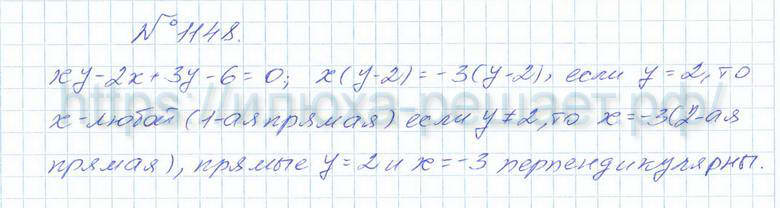 № 1148.
xy-2x+3y-6=0; x(y-2)=-3(y-2), если y=2, то
x-любой (1-ая прямая) если y≠2, то x=-3(2-ая
прямая), прямые y=2 и x=-3 перпендикулярны.
https://илюха-решает.рф/